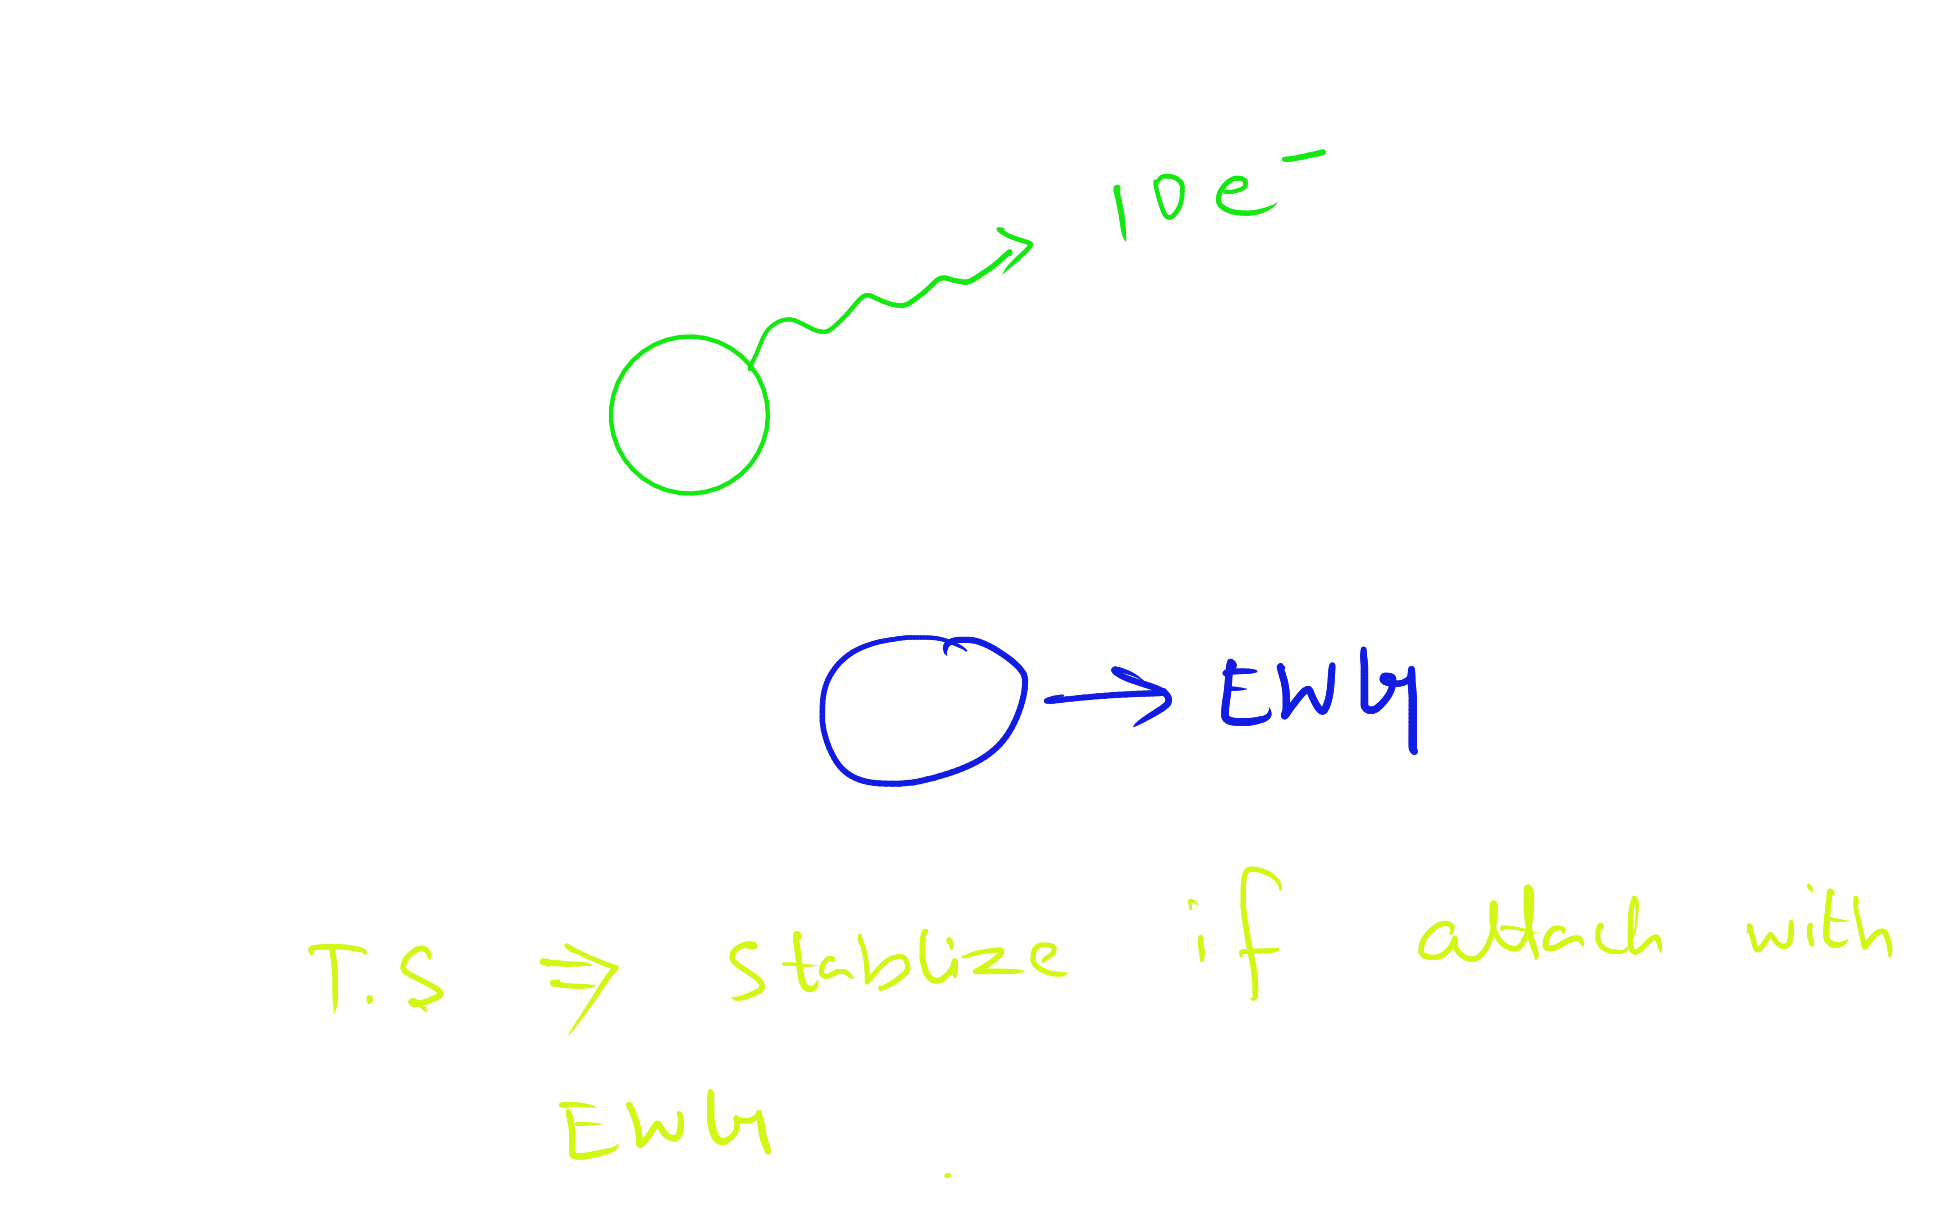 10e⁻
EWG
T.S ⇒ stablize if attach with
EWG